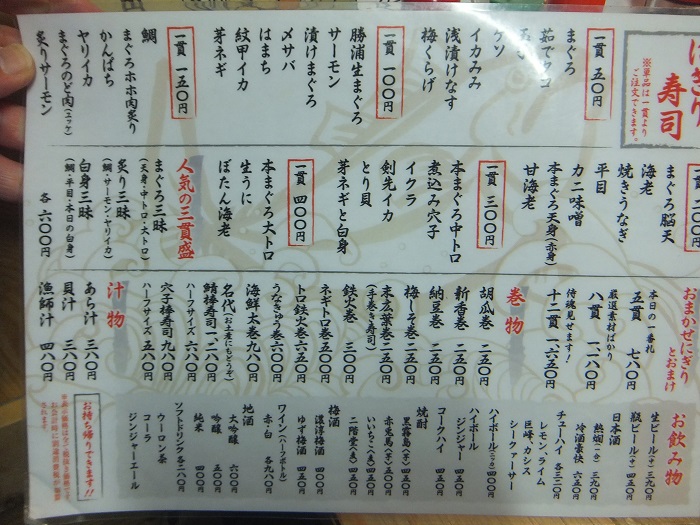 にぎり
寿司
※単品は一貫より
ご注文できます。
一貫 五〇円
まぐろ
茹でタコ
玉子
ゲソ
イカみみ
浅漬けなす
梅くらげ
一貫 一〇〇円
勝浦生まぐろ
サーモン
漬けまぐろ
メサバ
はまち
紋甲イカ
芽ネギ
一貫 一五〇円
鯛
まぐろホホ肉炙り
かんぱち
ヤリイカ
まぐろのど肉(エッケ)
炙りサーモン
まぐろ脳天
海老
焼きうなぎ
平目
カニ味噌
本まぐろ天身(赤身)
甘海老
一貫 三〇〇円
本まぐろ中トロ
煮込み穴子
イクラ
剣先イカ
とり貝
芽ネギと白身
一貫 四〇〇円
本まぐろ大トロ
生うに
ぼたん海老
人気の三貫盛
まぐろ三昧
(天身・中トロ・大トロ)
炙り三昧
(鯛・サーモン・ヤリイカ)
白身三昧
(鯛・平目・本日の白身)
各 六〇〇円
おまかせにぎり
とおまけ
本日の一番札
五貫 七八〇円
厳選素材ばかり
八貫 一、一八〇円
侍魂見せます!
十二貫 一、六五〇円
巻物
胡瓜巻 二五〇円
新香巻 二五〇円
納豆巻 二五〇円
梅しそ巻 二五〇円
末広葉巻 二五〇円
(手巻き寿司)
鉄火巻 三〇〇円
ネギトロ巻 五〇〇円
トロ鉄火巻 六五〇円
うなきゅう巻 六〇〇円
海鮮太巻 九八〇円
名代(お土産にもどうぞ)
鯖棒寿司 一、二八〇円
ハーフサイズ 六八〇円
穴子棒寿司 九八〇円
ハーフサイズ 五八〇円
汁物
あら汁 三八〇円
貝汁 三八〇円
漁師汁 四八〇円
お飲み物
生ビール(中) 三九〇円
瓶ビール(中) 五五〇円
日本酒
熱燗(一合) 三九〇円
冷酒豪快 六五〇円
チューハイ 各三二〇円
レモン、ライム
巨峰、カシス
シークァーサー
ハイボール
ジンジャー 四五〇円
コークハイ 四五〇円
焼酎
黒霧島(芋) 四五〇円
赤兎馬(芋) 五〇〇円
いいちこ(麦) 四五〇円
二階堂(麦) 四五〇円
梅酒
濃洋梅酒 四五〇円
ゆず梅酒 四五〇円
ワイン(ハーフボトル)
赤・白 各九八〇円
地酒
大吟醸 六〇〇円
吟醸 五〇〇円
純米 四〇〇円
ソフトドリンク 各二八〇円
ウーロン茶
コーラ
ジンジャーエール
お持ち帰りできます!!